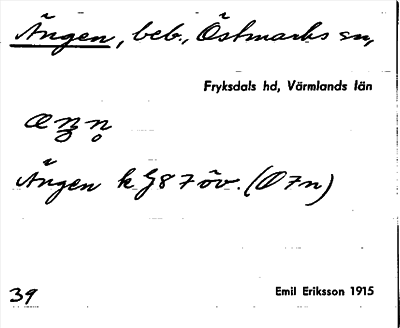 Ängen, beb., Östmarks sn,
Fryksdals hd, Värmlands län
Ängen k G87 öv. (Ö7n)
39
Emil Eriksson 1915